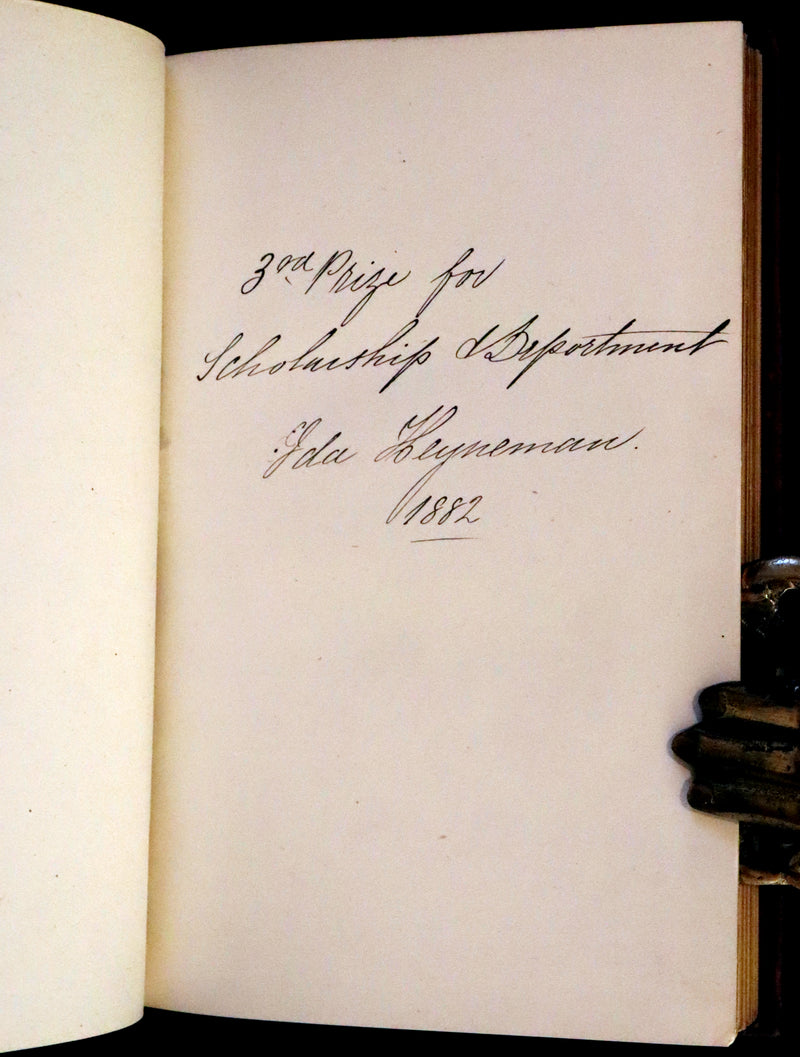 3rd Prize for
Scholarship & Deportment
Ida Heyneman.
1882